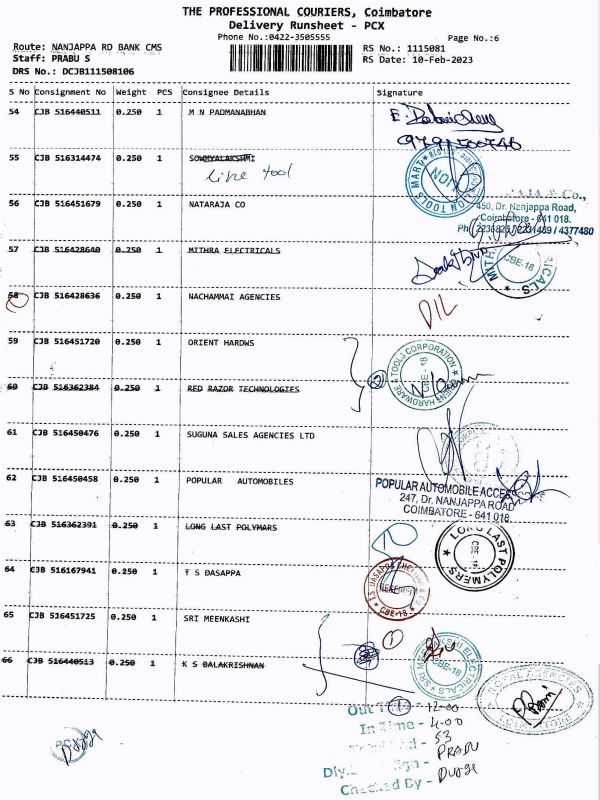 THE PROFESSIONAL COURIERS, Coimbatore
Delivery Runsheet - PCX
Phone No.:0422-3505555
Page No.:6
Route: NANJAPPA RD BANK CMS
RS No.: 1115081
Staff: PRABU S
RS Date: 10-Feb-2023
DRS No.: DCJB111508106
S No Consignment No Weight PCS Consignee Details Signature
54 CJB 516440511 0.250 1 M N PADMANABHAN
55 CJB 516314474 0.250 1 SOWMYALAKSHMI
Line tool
TOOLS MART
56 CJB 516451679 0.250 1 NATARAJA CO
450, Dr. Nanjappa Road,
Coimbatore - 641 018.
57 CJB 516428640 0.250 1 MITHRA ELECTRICALS
CBE-18
58 CJB 516428636 0.250 1 NACHAMMAI AGENCIES
D/L
59 CJB 516451720 0.250 1 ORIENT HARDWS
HARDWARE & TOOLS CORPORATION
CBE - 18
2
60 CJB 516362384 0.250 1 RED RAZOR TECHNOLOGIES
61 CJB 516450476 0.250 1 SUGUNA SALES AGENCIES LTD
62 CJB 516450458 0.250 1 POPULAR AUTOMOBILES
POPULAR AUTOMOBILE ACCESS
247, Dr. NANJAPPA ROAD
COIMBATORE - 641 018.
63 CJB 516362391 0.250 1 LONG LAST POLYMARS
LONG LAST POLYMERS
64 CJB 516167941 0.250 1 T S DASAPPA
CBE-18
65 CJB 516451725 0.250 1 SRI MEENKASHI
1
ELECTRICALS
CBE-18
66 CJB 516440513 0.250 1 K S BALAKRISHNAN
ROYAL AGENCIES
Out Time - 12.00
In Time - 4.00
53
PRABU
Checked By -